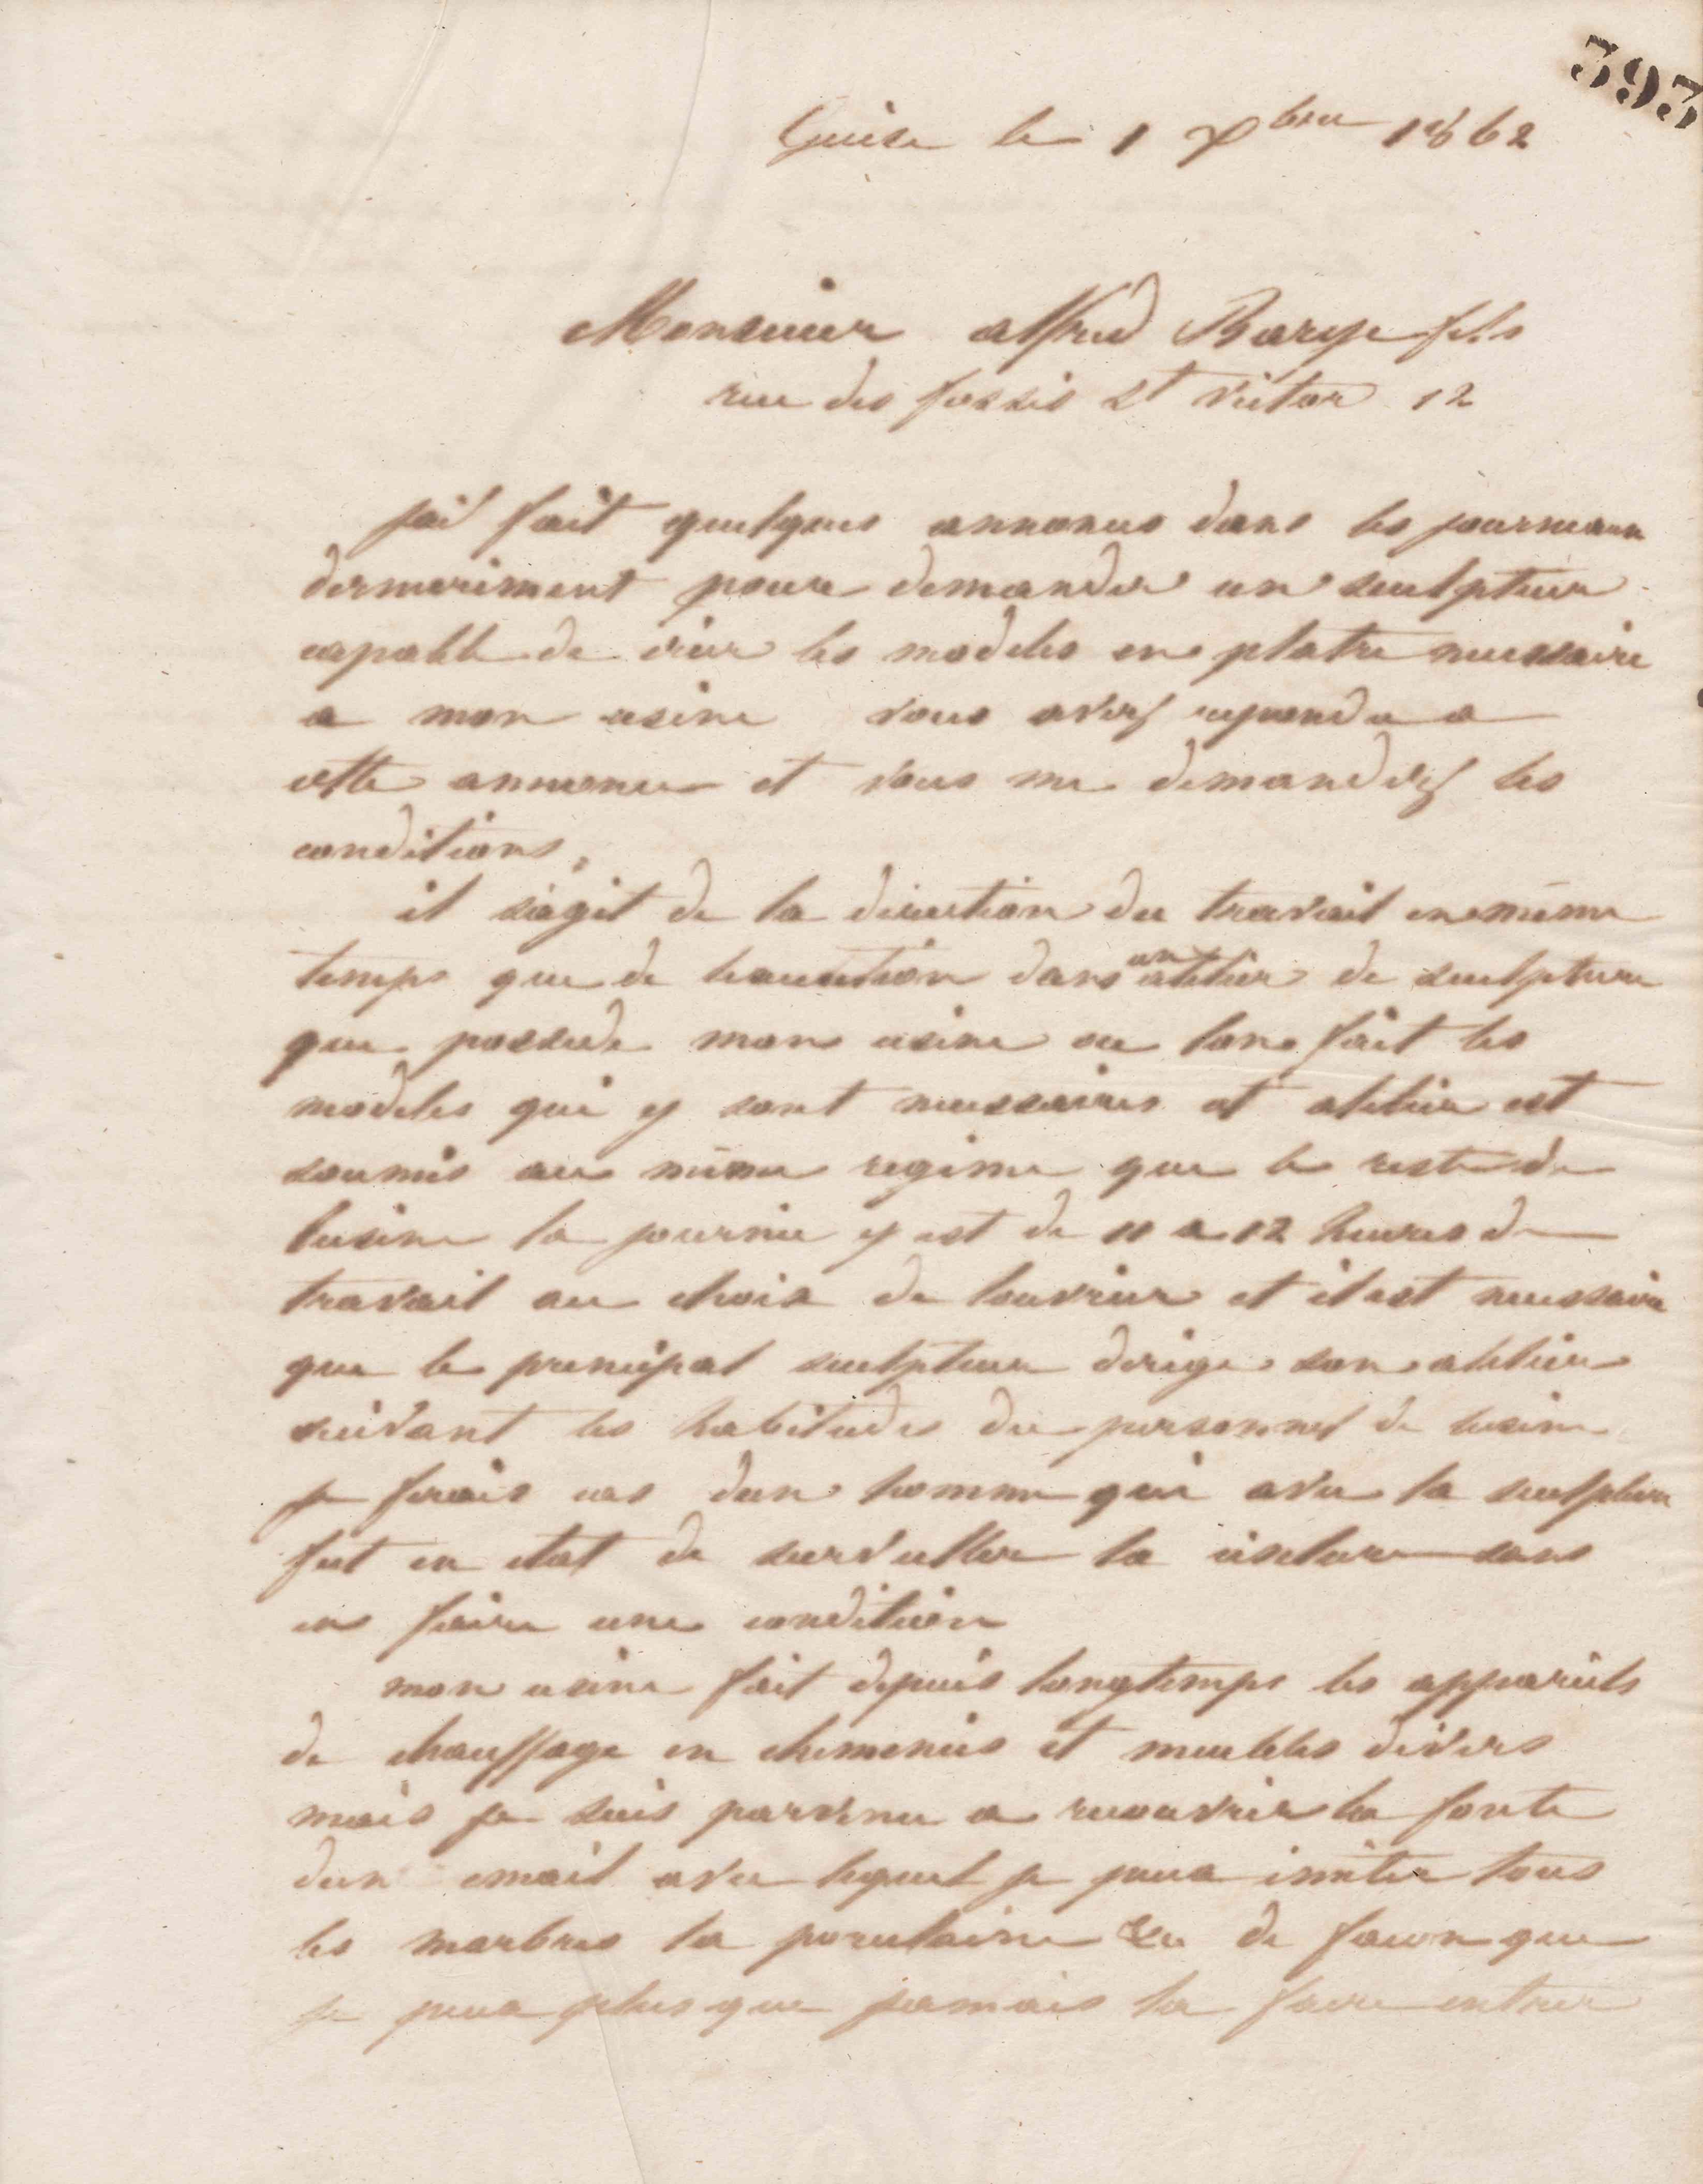 393
Guise le 1 Xbre 1862
Monsieur alfred Barye fils
rue des fossés St victor 12
jai fait quelques annonces dans les journaux
dernierement pour demander un sculpteur
capable de créer les modeles en platre necessaire
a mon usine vous avez repondu a
cette annonce et vous me demandez les
conditions.
il s'agit de la direction du travail en même
temps que de lexecution dans un atelier de sculpture
que possede mon usine ou lon fait les
modeles qui y sont necessaires cet atelier est
soumis au même regime que le reste de
lusine la journée y est de 11 a 12 heures de
travail au choix de louvrier et il est necessaire
que le principal sculpteur dirige son atelier
suivant les habitudes du personnel de lusine
je ferais cas dun homme qui avec la sculpture
fut en etat de surveiller la ciselure sans
en faire une condition
mon usine fait depuis longtemps les appareils
de chauffage en cheminées et meubles divers
mais je suis parvenu a recouvrir la fonte
dun email avec lequel je peux imiter tous
les marbres la porcelaine &c de facon que
je peux plus que jamais la faire entrer